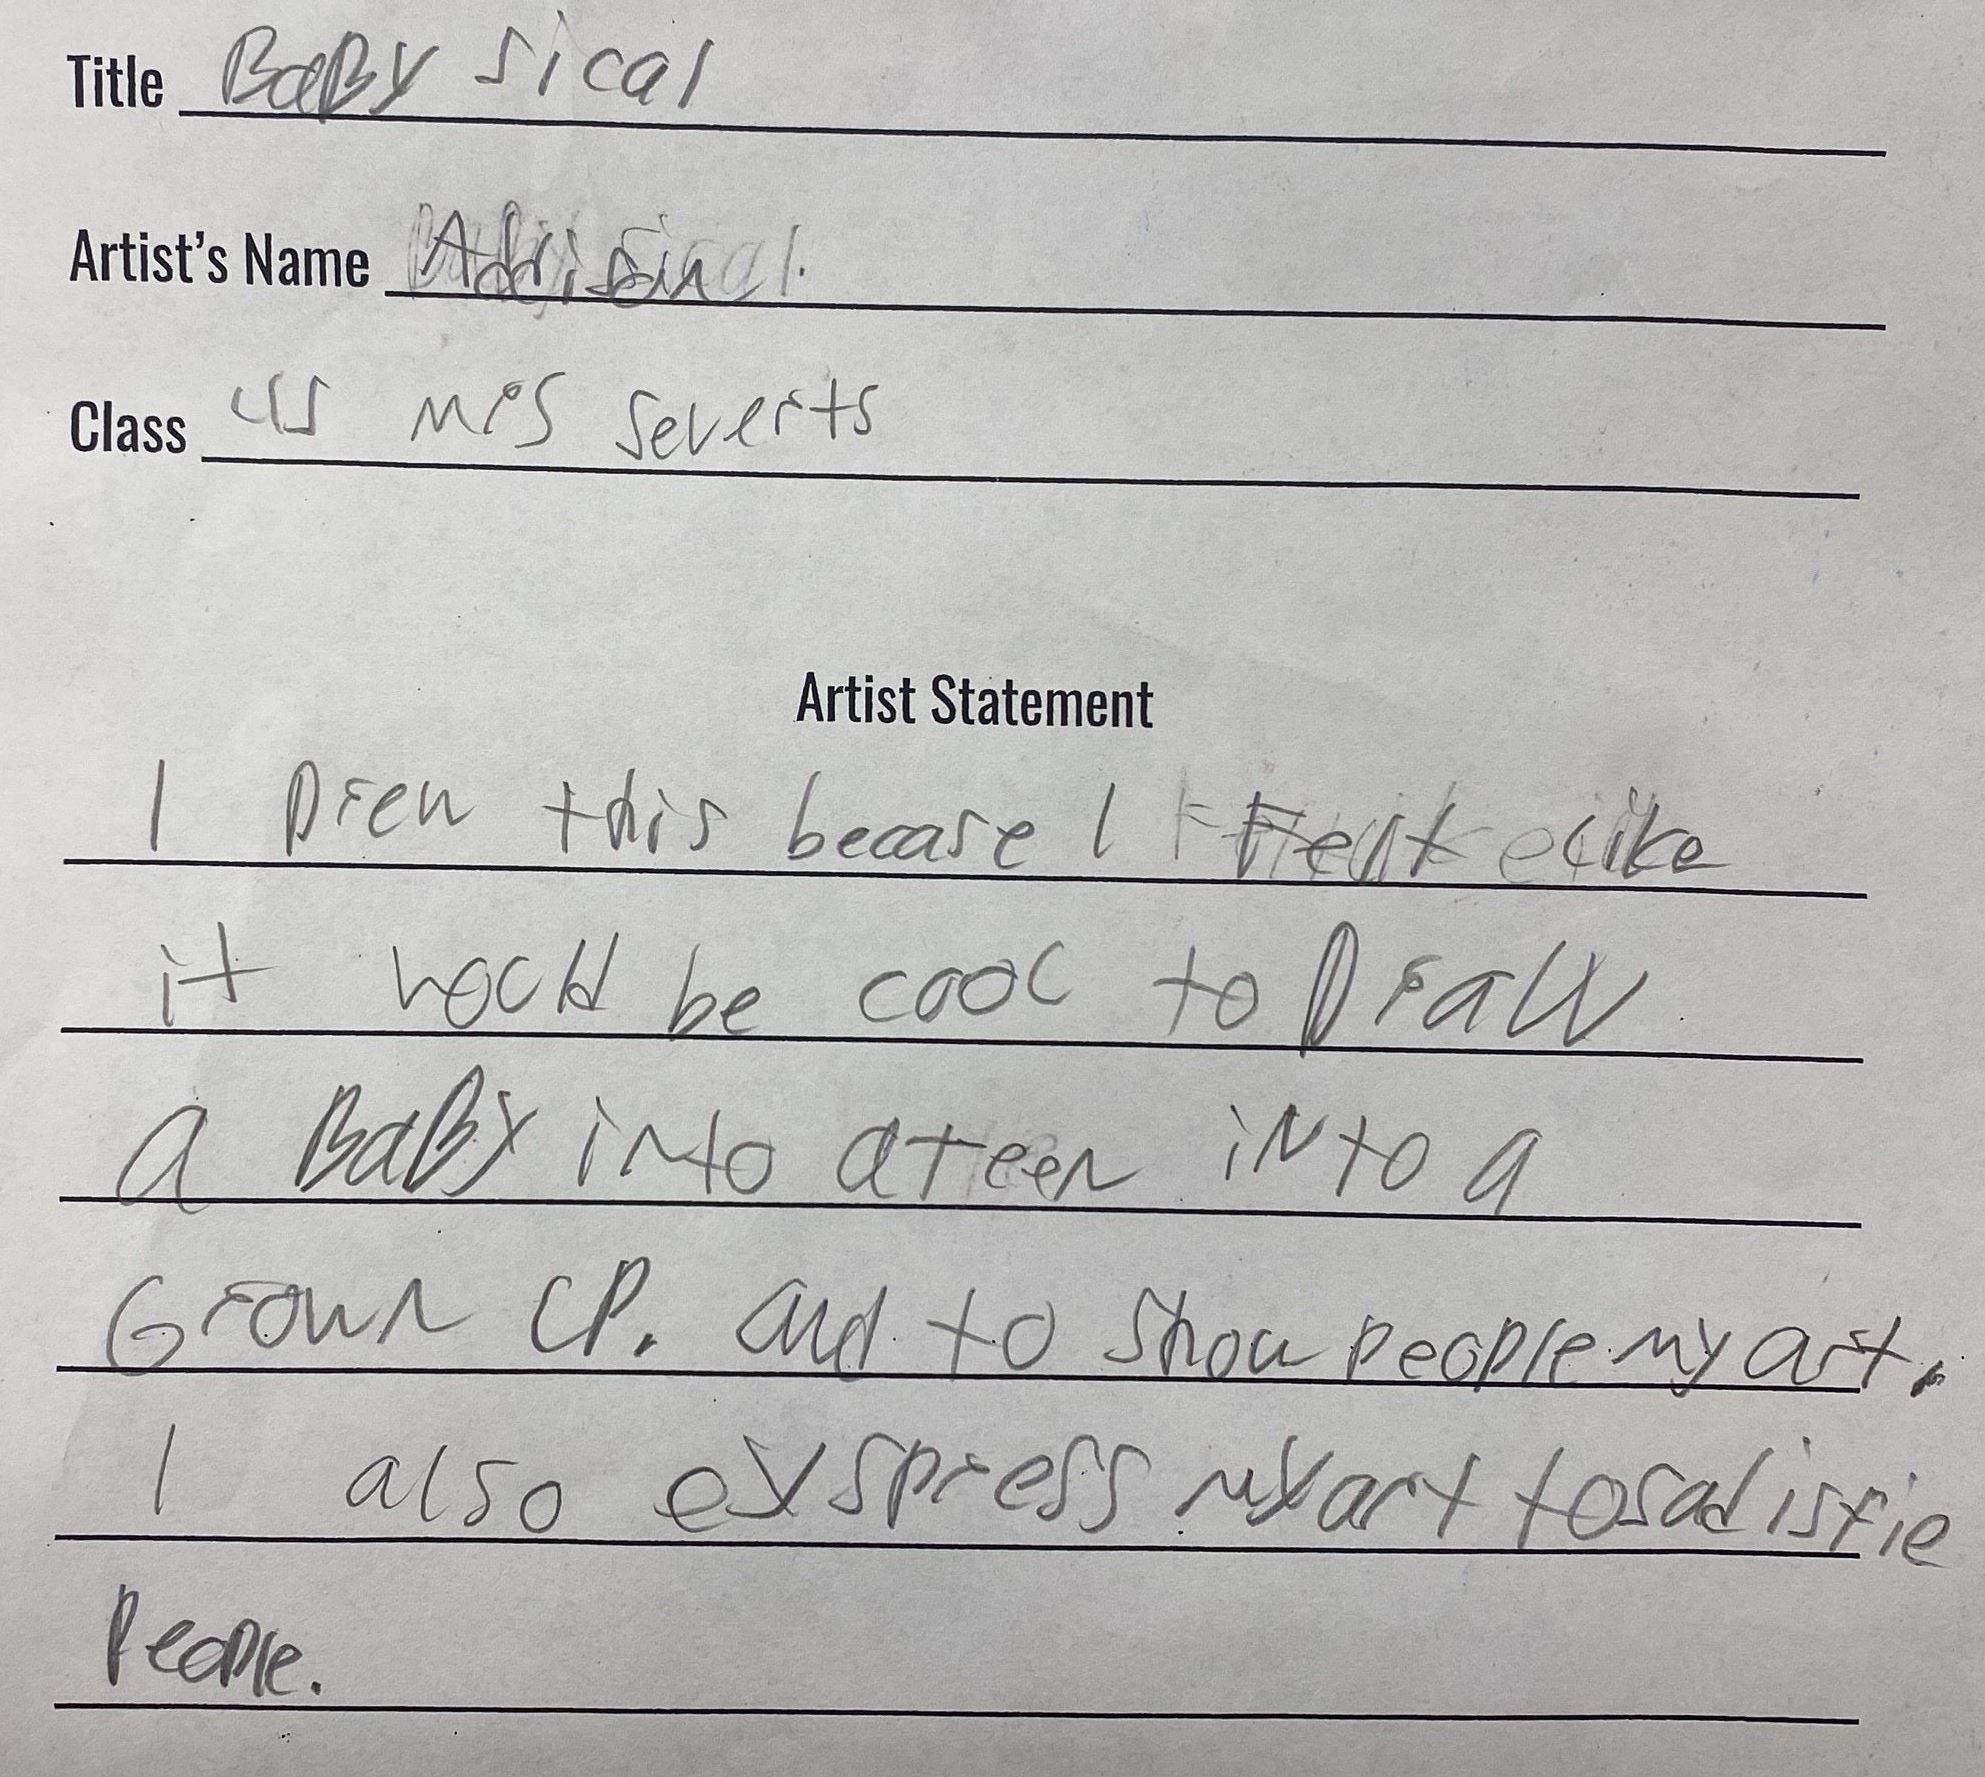 Title BaBy sical
Artist's Name Addison
Class 4S mrs Severts
Artist Statement
I Drew this becase I Felt like
it would be cool to Draw
a BaBy into a teen into a
Grown UP. and to show people my art.
I also exspress my art to sadisfie
People.